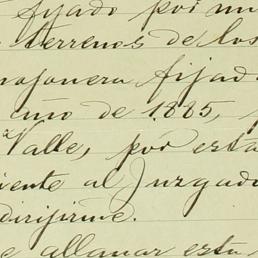 fijado por mi
terrenos de los
mojonera fijad
año de 1885,
Valle, por esta
iente al Juzgado
dirijirme.
e allanar esta